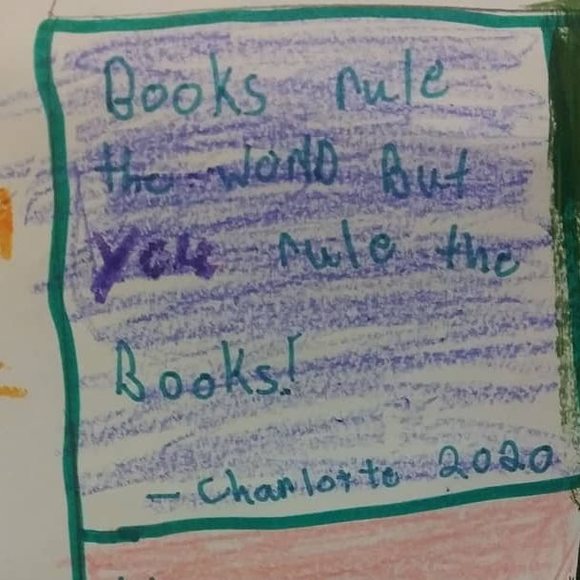 Books rule
the world But
you rule the
Books!
- Charlotte 2020